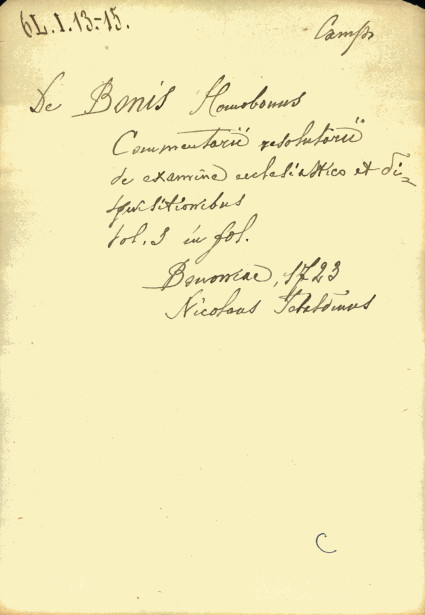 6L.I.13-15.
Camp
De Bonis Homobonus
Commentarii resolutorii
de examine ecclesiastico et di-
squisitionibus
Vol. 3 in fol.
Bononiae, 1723
Nicolaus
C